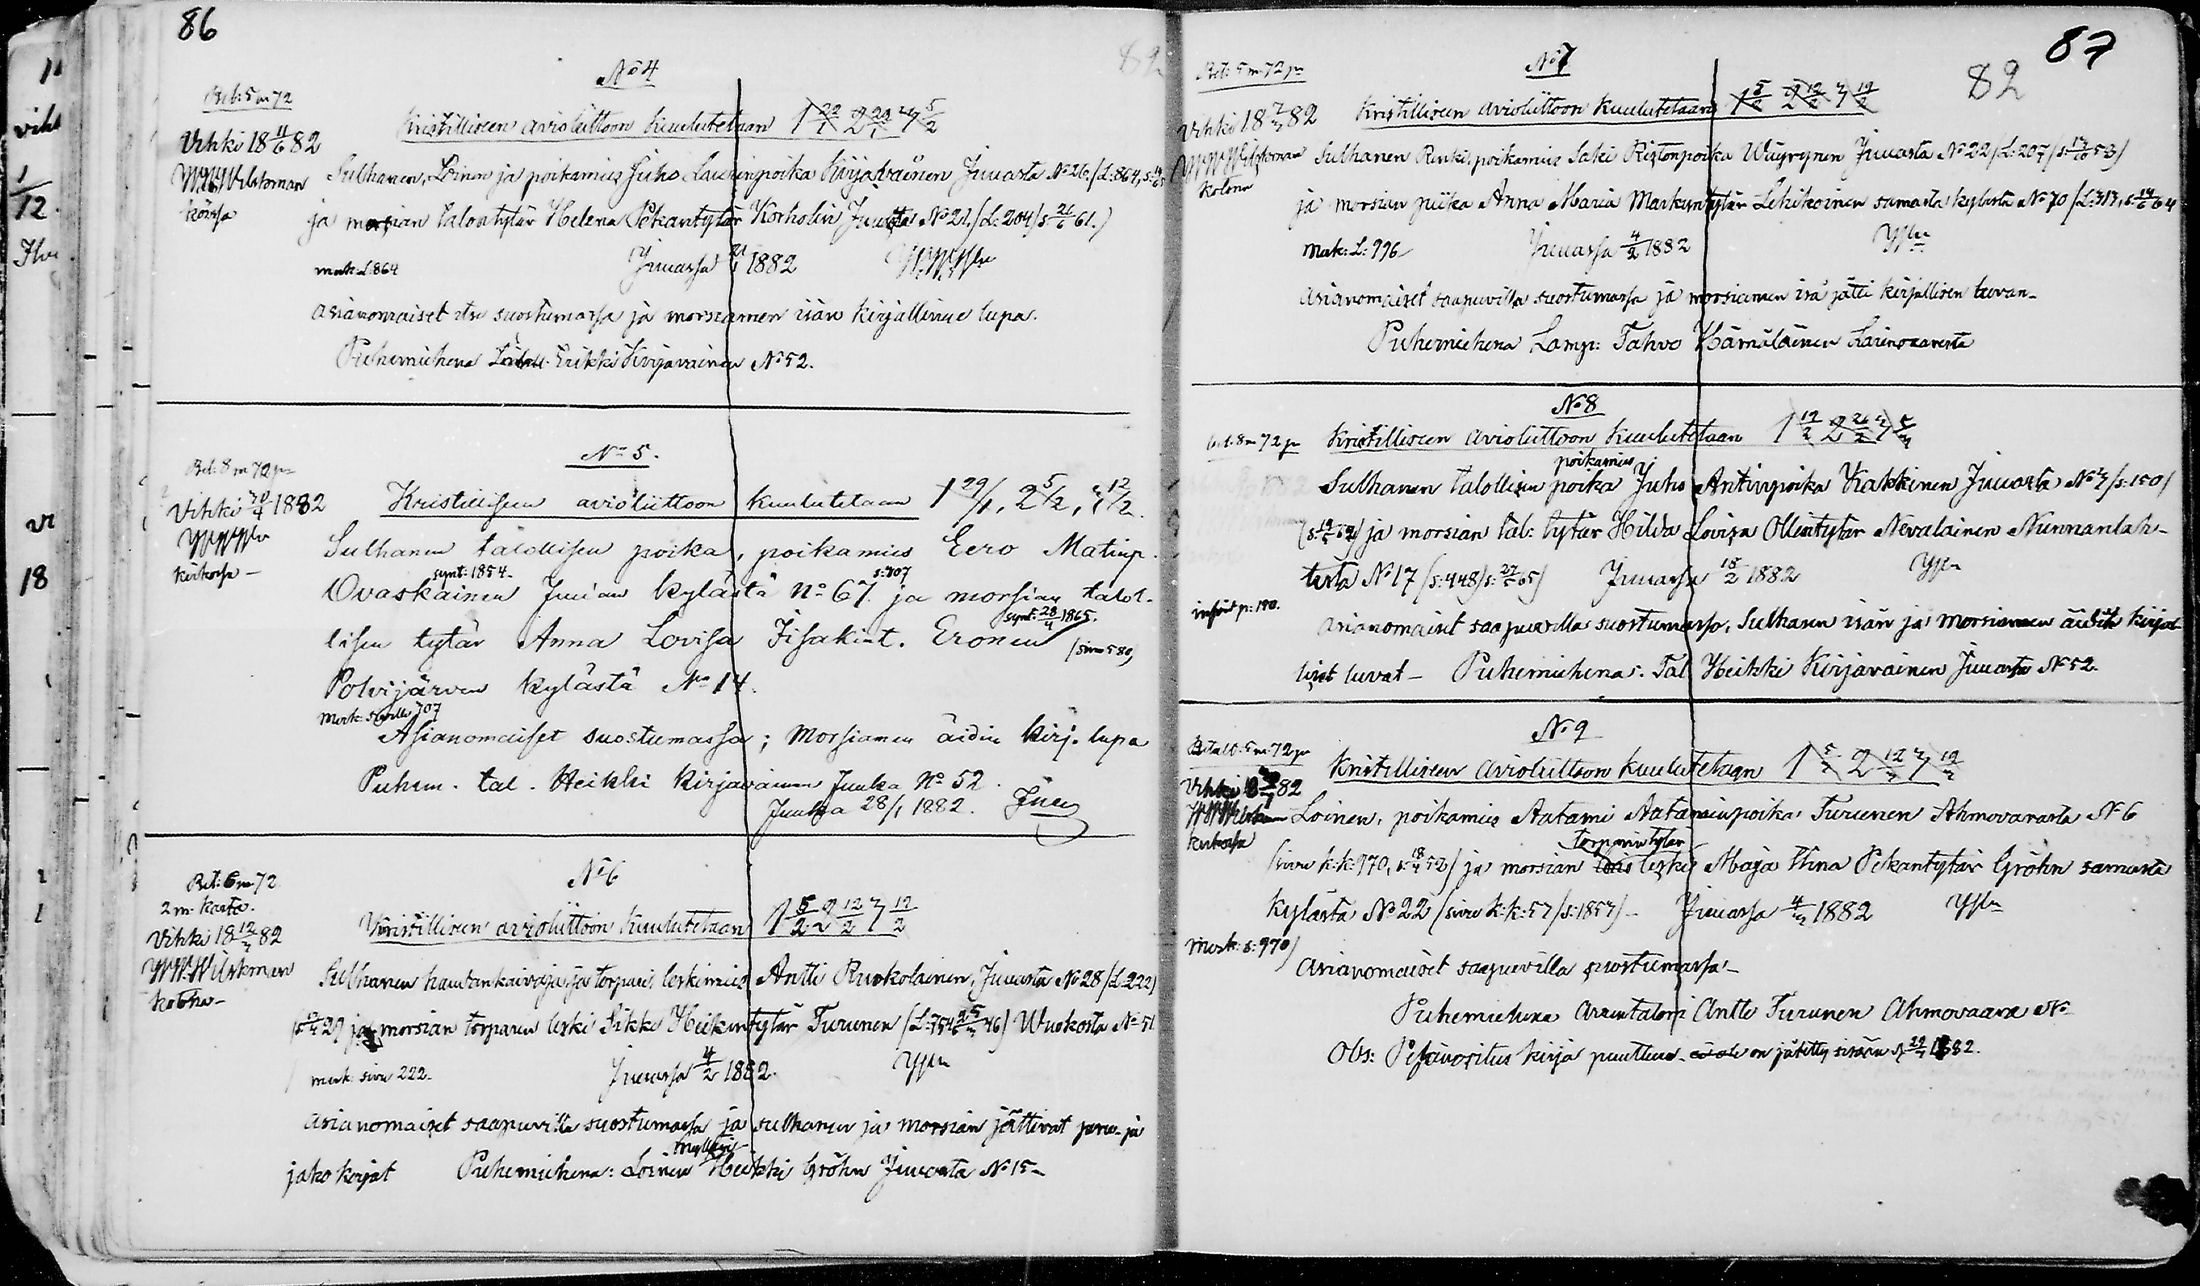 86
No 4
Bet: 5 m 72
Vihki 18 11/6 82
Kristilliseen avioliittoon kuulutetaan 1 22/1 2 29/1 3 5/2
Sulhanen, Loinen ja poikamies Juho Laurinpoika Kirjavainen Juuasta No 26 /L: 864,
ja morsian talontytär Helena Pekantytär Korholin Juuasta No 21 /L: 204/ s: 26/6 61.)
merk: L: 864 Juuassa 21/1 1882
asianomaiset itse suostumassa ja morsiamen isän kirjallinen lupa.
Puhemiehenä Erikki Kirjavainen No 52.
No 5.
Bet: 8 m 72 p
Vihki 30/4 1882
kirkossa
Kristilliseen avioliittoon kuulutetaan 1 29/1, 2 5/2, 3 12/2.
Sulhanen talollisen poika, poikamies Eero Matinp.
synt: 1854. s: 707
Ovaskainen Juuan kylästä No 67. ja morsian talol-
synt: 28/4 1865.
lisen tytär Anna Lovisa Iisakint. Eronen (sivu 580)
Polvijärven kylästä No 14.
Merk: sivulle 707
Asianomaiset suostumassa; Morsiamen äidin kirj. lupa
Puhem. tal. Heikki Kirjavainen Juuka No 52.
Juuka 28/1 1882.
No 6
Bet: 6 m 72
2 m. karta.
Vihki 18 12/3 82
W. Wilskman
Kotona
Kristilliseen avioliittoon kuulutetaan 1 5/2 2 12/2 3 19/2
Sulhanen haudankaivaja ja torpari, leskimies Antti Ruokolainen, Juuasta No 28 /L: 222/
ja morsian torparin leski Heikintytär Turunen (L: 754 46) Wuokosta No 51
merk: sivu 222. Juuassa 4/2 1882.
asianomaiset saapuvilla suostumassa ja sulhanen ja morsian jättivät peru- ja
jakokirjat Puhemiehenä: Loinen Heikki Gröhn Juuasta No 15
87
82
No 7
Bet: 5 m 72 p
Vihki 18 7/3 82
kotona
Kristilliseen avioliittoon kuulutetaan 1 5/2 2 12/2 3 19/2
Sulhanen Renki, poikamies Saki Ristonpoika Juuasta No 22 /L: 207/
ja morsian piika Anna Maria Markuntytär Lehikoinen samasta kylästä No 70
Merk: L: 996 Juuassa 4/2 1882
Asianomaiset saapuvilla suostumassa ja morsiamen isä jätti kirjallisen luvan
Puhemiehenä Lamp: Tahvo Hämäläinen
No 8
bet: 8 m 72 p
Kristilliseen avioliittoon kuulutetaan 1 19/2 2 26/2 3 5/3
poikamies
Sulhanen talollisen poika Juho Antinpoika Kakkinen Juuasta No 4 /s: 150/
ja morsian tal: tytär Hilda Lovisa Ollentytär Nevalainen Nunnanlah-
desta No 17 (s: 448/ Juuassa 18/2 1882
införd p: 190.
Asianomaiset saapuvilla suostumassa, Sulhasen isän ja morsiamen äidin kirjal-
liset luvat Puhemiehenä: Tal Heikki Kirjavainen Juuasta No 52.
No 9
Betalt: 5 m 72 p
kirkossa
Kristilliseen avioliittoon kuulutetaan 1 5/3 2 12/3 3 19/3
Loinen, poikamies Aatami Aataminpoika Turunen Ahmovaarasta No 6
Torparin tytär
(sivu k: k: 970, s: 18/4 52) ja morsian leski Maija Stina Pekantytär Gröhn samasta
kylästä No 22 (sivu k: k: 57/ s: 1857) Juuassa 4/3 1882
Merk: s: 970)
Asianomaiset saapuvilla suostumassa
Puhemiehenä Antti Turunen Ahmovaara No
Obs: Pesänositus kirja puuttuu on jätetty sisään 1882.